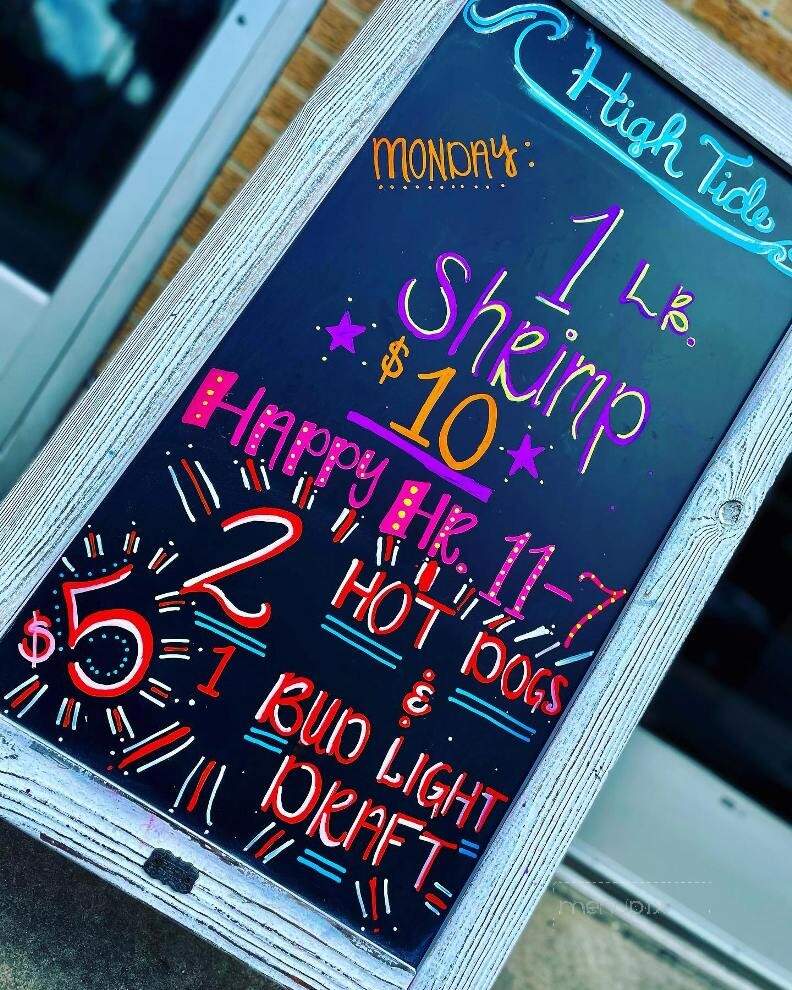 High Tide
MONDAY:
1 LB.
Shrimp
$10
HAPPY HR. 11-7
$5 2 HOT DOGS
&
1 BUD LIGHT
DRAFT
menupix